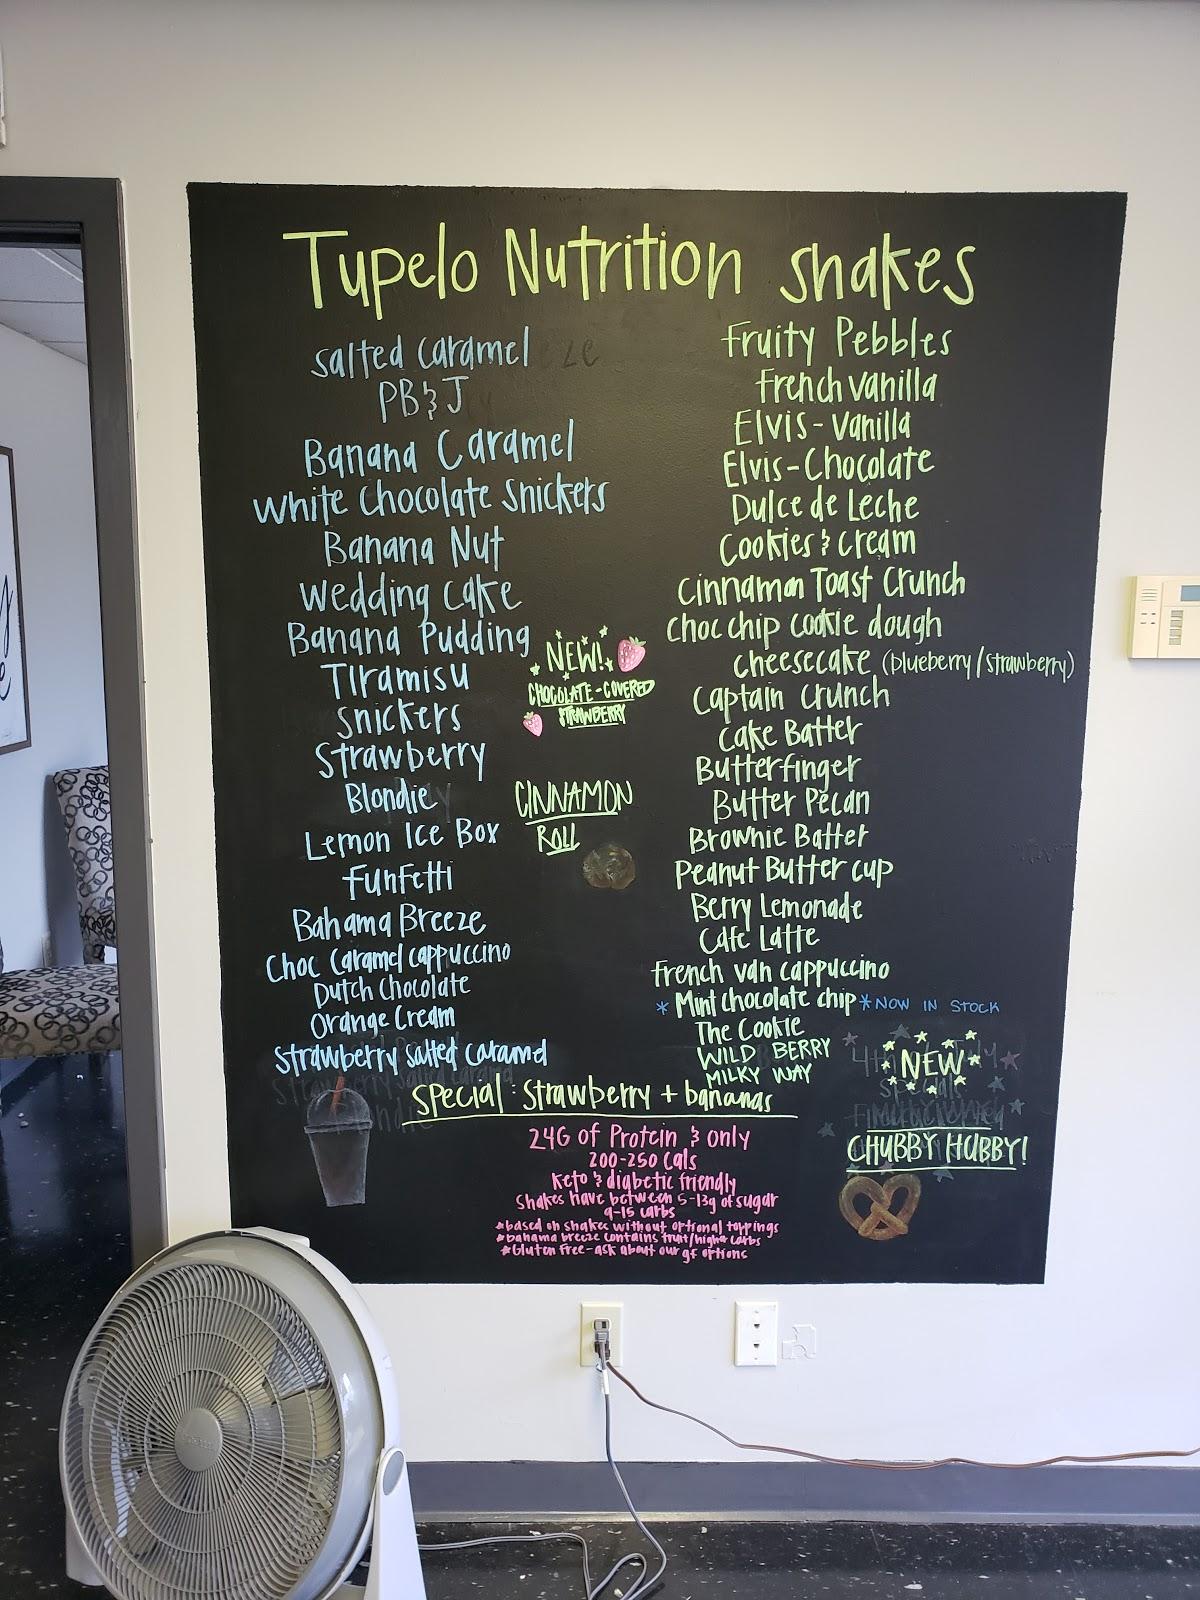 Tupelo Nutrition shakes
salted caramel
PB&J
Banana Caramel
White Chocolate Snickers
Banana Nut
Wedding Cake
Banana Pudding
Tiramisu
Snickers
Strawberry
Blondie
Lemon Ice Box
Funfetti
Bahama Breeze
Choc Caramel cappuccino
Dutch Chocolate
Orange Cream
Strawberry salted caramel
NEW!
CHOCOLATE-COVERED
STRAWBERRY
CINNAMON
ROLL
Fruity Pebbles
French vanilla
Elvis-vanilla
Elvis-Chocolate
Dulce de Leche
Cookies & cream
Cinnamon Toast Crunch
Choc chip cookie dough
cheesecake (blueberry/strawberry)
Captain Crunch
Cake Batter
Butterfinger
Butter Pecan
Brownie Batter
Peanut Butter cup
Berry Lemonade
Cafe Latte
French van cappuccino
*Mint chocolate chip* NOW IN STOCK
The Cookie
WILD BERRY
MILKY WAY
Special: Strawberry + bananas
NEW
CHUBBY HUBBY!
24G of Protein & only
200-250 Cals
Keto & diabetic friendly
Shakes have between 5-13g of sugar
9-15 carbs
*based on shakes without optional toppings
*bahama breeze contains fruit/higher carbs
*Gluten Free-ask about our gf options